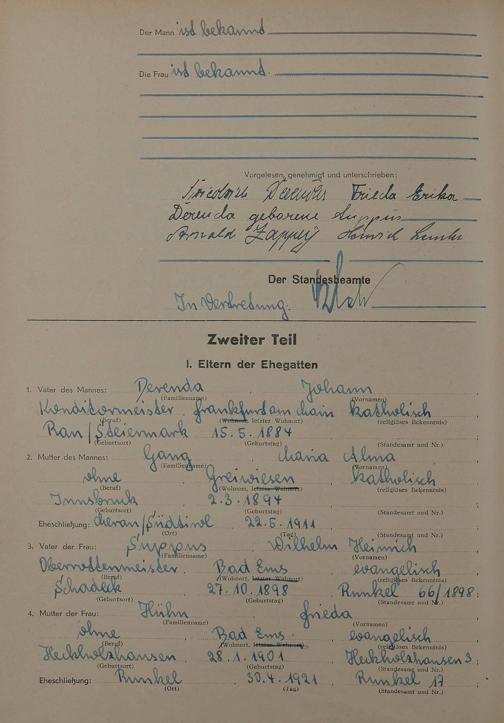 Der Mann ist bekannt
Die Frau ist bekannt.
Vorgelesen, genehmigt und unterschrieben:
Friedrich Derenda Frieda Erika
Derenda geborene
Arnold Heinrich
Der Standesbeamte
In Vertretung:
Zweiter Teil
I. Eltern der Ehegatten
1. Vater des Mannes: Derenda Johann
(Familienname) (Vornamen)
Konditormeister, Frankfurt am Main katholisch
(Beruf) (Wohnort, letzter Wohnort) (religiöses Bekenntnis)
Ran/Steiermark 15.5.1884
(Geburtsort) (Geburtstag) (Standesamt und Nr.)
2. Mutter des Mannes: Gang Maria Alma
(Familienname) (Vornamen)
ohne Greiwiesen katholisch
(Beruf) (Wohnort, letzter Wohnort) (religiöses Bekenntnis)
Innsbruck 2.3.1894
(Geburtsort) (Geburtstag) (Standesamt und Nr.)
Eheschließung: Meran/Südtirol 22.5.1911
(Ort) (Tag) (Standesamt und Nr.)
3. Vater der Frau: Wilhelm Heinrich
(Familienname) (Vornamen)
Oberrottenmeister, Bad Ems evangelisch
(Beruf) (Wohnort, letzter Wohnort) (religiöses Bekenntnis)
Schadeck 27.10.1898 Runkel 66/1898
(Geburtsort) (Geburtstag) (Standesamt und Nr.)
4. Mutter der Frau: Hühn Frieda
(Familienname) (Vornamen)
ohne Bad Ems evangelisch
(Beruf) (Wohnort, letzter Wohnort) (religiöses Bekenntnis)
Heckholzhausen 28.1.1901 Heckholzhausen 3
(Geburtsort) (Geburtstag) (Standesamt und Nr.)
Eheschließung: Runkel 30.4.1921 Runkel 17
(Ort) (Tag) (Standesamt und Nr.)